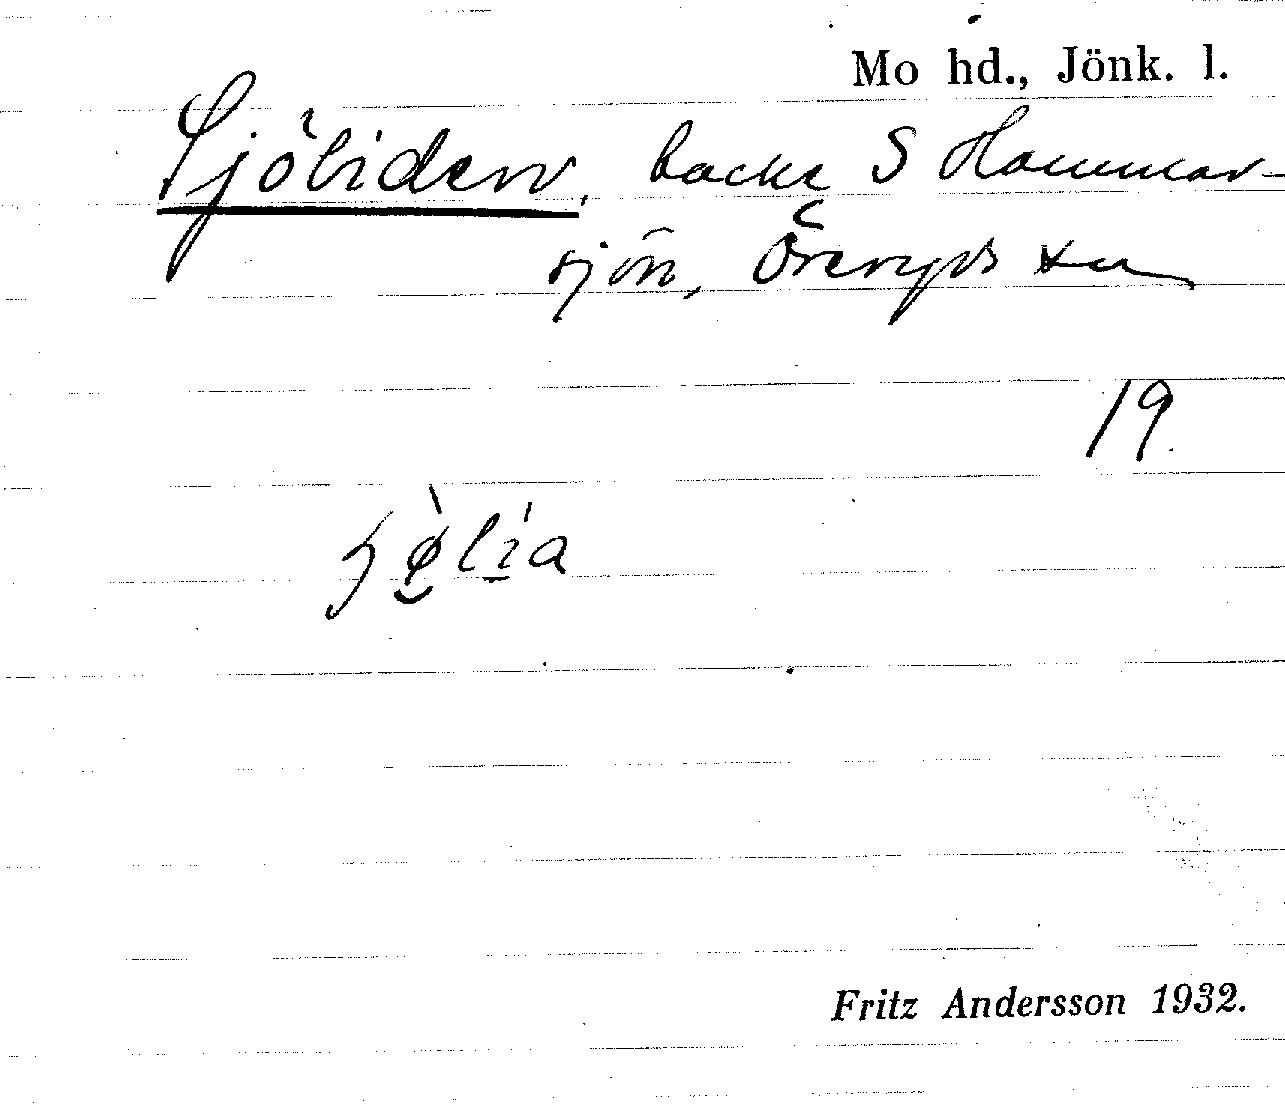 Mo hd., Jönk. l.
Sjöliden, backe S Hammar-
sjön, Öreryds sn
19.
Fritz Andersson 1932.